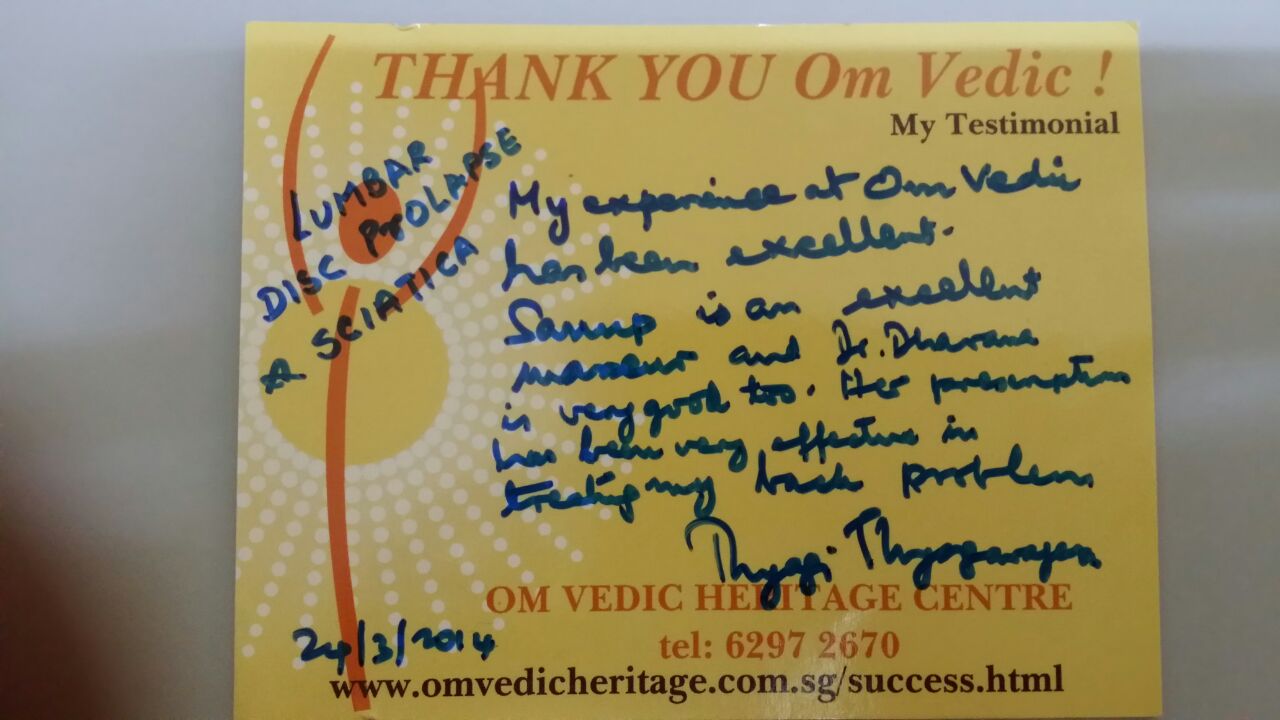 THANK YOU Om Vedic !
My Testimonial
LUMBAR
DISC PrOLAPSE
& SCIATICA
My experience at Om Vedic
has been excellent.
Sarup is an excellent
masseur and Dr. Dharana
is very good too. Her prescription
has been very effective in
treating my back problem
Thyagi Thyagarajan
OM VEDIC HERITAGE CENTRE
24/3/2014
tel: 6297 2670
www.omvedicheritage.com.sg/success.html